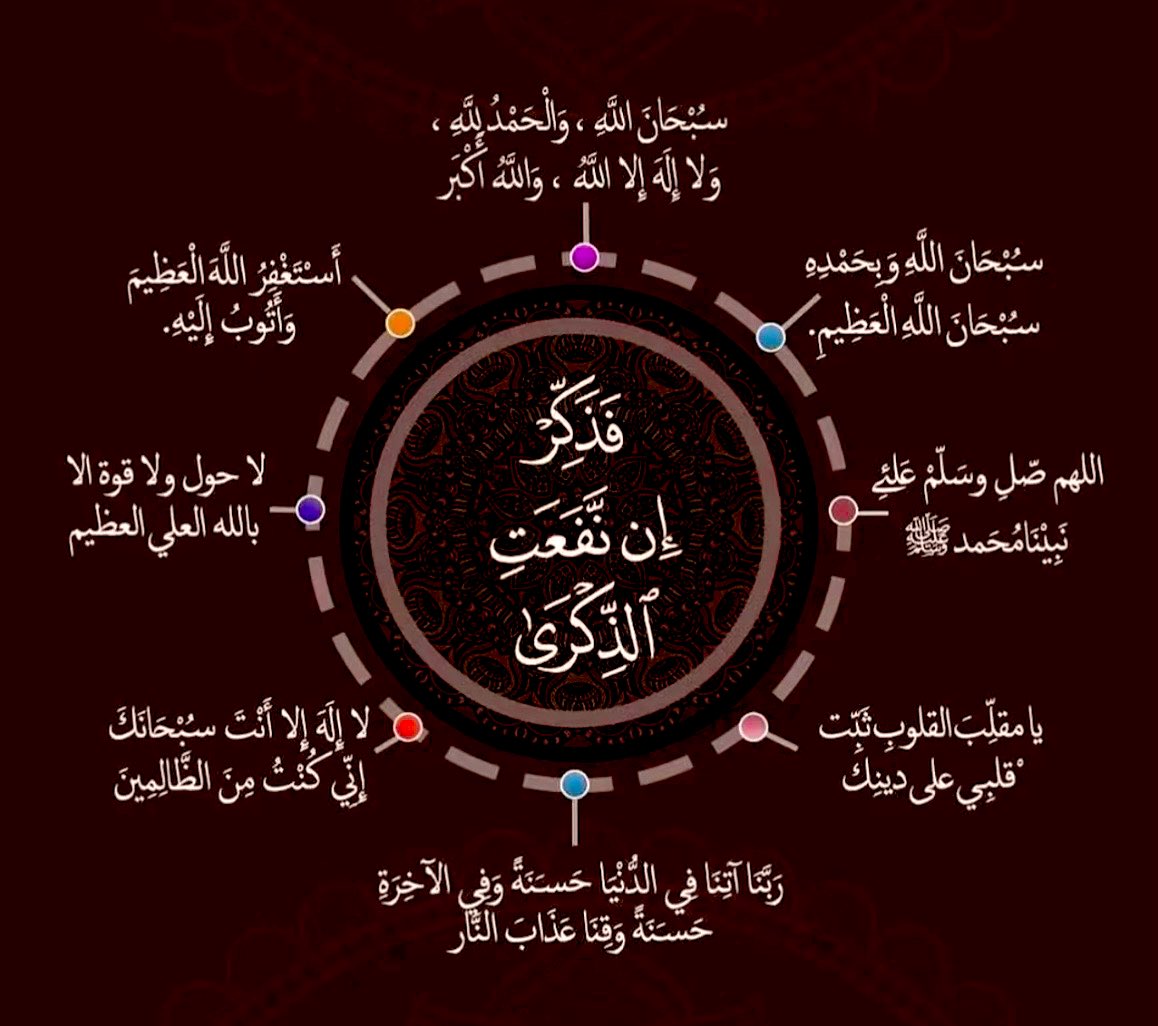 سُبْحَانَ اللَّهِ ، وَالْحَمْدُ لِلَّهِ ،
وَلا إِلَهَ إِلا اللَّهُ ، وَاللَّهُ أَكْبَر
سُبْحَانَ اللَّهِ وَبِحَمْدِهِ
سُبْحَانَ اللَّهِ الْعَظِيمِ.
أَسْتَغْفِرُ اللَّهَ الْعَظِيمَ
وَأَتُوبُ إِلَيْهِ.
فَذَكِّرْ
إِن نَّفَعَتِ
ٱلذِّكْرَىٰ
اللهم صّلِ وسَلّمْ عَلئے
نَبِيْنَامُحَمد ﷺ
لا حول ولا قوة الا
بالله العلي العظيم
يا مقلِّبَ القلوبِ ثَبِّت
ْقلبِي على دينِك
لا إِلَهَ إِلا أَنْتَ سُبْحَانَكَ
إِنِّي كُنْتُ مِنَ الظَّالِمِينَ
رَبَّنَا آتِنَا فِي الدُّنْيَا حَسَنَةً وَفِي الآخِرَةِ
حَسَنَةً وَقِنَا عَذَابَ النَّار